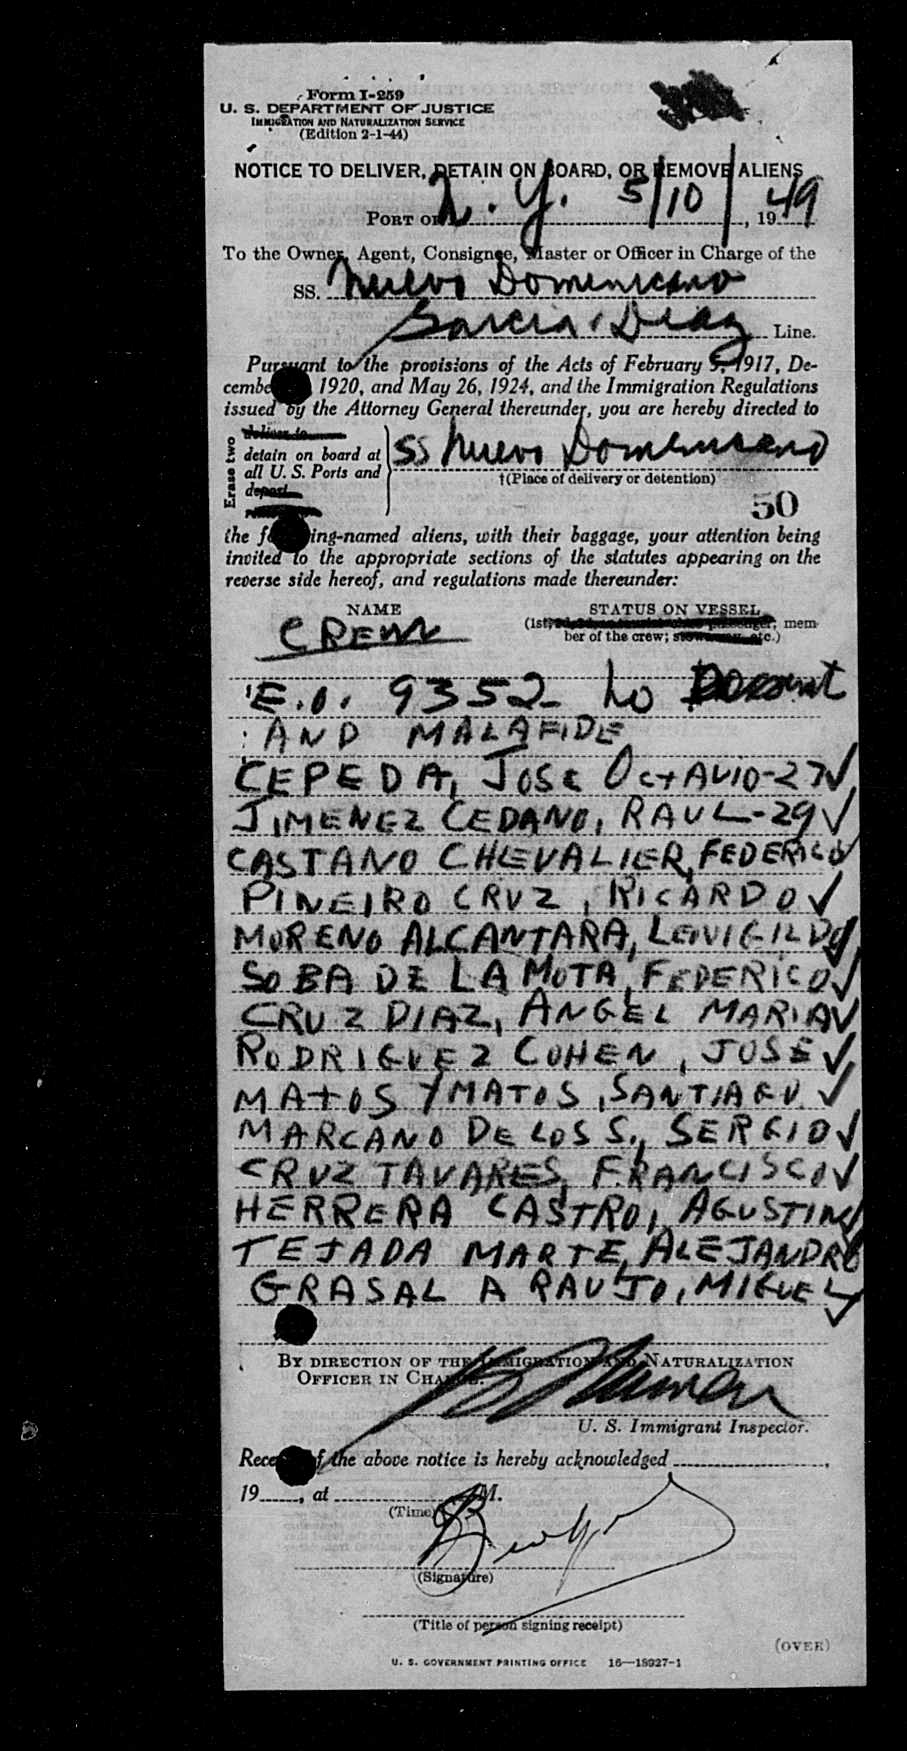 Form I-259
U. S. DEPARTMENT OF JUSTICE
IMMIGRATION AND NATURALIZATION SERVICE
(Edition 2-1-44)
NOTICE TO DELIVER, DETAIN ON BOARD, OR REMOVE ALIENS
PORT OF N. Y. 5/10/, 1949
To the Owner, Agent, Consignee, Master or Officer in Charge of the
SS. Nuevo Domenicano
Garcia & Diaz Line.
Pursuant to the provisions of the Acts of February 5, 1917, De-
cember 1920, and May 26, 1924, and the Immigration Regulations
issued by the Attorney General thereunder, you are hereby directed to
Erase two
deliver to
detain on board at
all U. S. Ports and
deport
SS Nuevo Domenicano
†(Place of delivery or detention)
50
the following-named aliens, with their baggage, your attention being
invited to the appropriate sections of the statutes appearing on the
reverse side hereof, and regulations made thereunder:
NAME
STATUS ON VESSEL
(1st, passenger, mem-
ber of the crew; etc.)
CREW
E.O. 9352 no
AND MALAFIDE
CEPEDA, JOSE OCTAVIO-27✓
JIMENEZ CEDANO, RAUL-29✓
CASTANO CHEVALIER, FEDERICO✓
PINEIRO CRUZ, RICARDO✓
MORENO ALCANTARA, LEOVIGILDO✓
SOBA DE LA MOTA, FEDERICO✓
CRUZ DIAZ, ANGEL MARIA✓
RODRIGUEZ COHEN, JOSE✓
MATOS Y MATOS, SANTIAGO ✓
MARCANO DE LOS S., SERGIO✓
CRUZ TAVARES, FRANCISCO✓
HERRERA CASTRO, AGUSTIN✓
TEJADA MARTE, ALEJANDRO
GRASAL ARAUJO, MIGUEL✓
BY DIRECTION OF THE IMMIGRATION AND NATURALIZATION
OFFICER IN CHARGE.
U. S. Immigrant Inspector.
Receipt of the above notice is hereby acknowledged ,
19 , at M.
(Time)
(Signature)
(Title of person signing receipt)
(OVER)
U. S. GOVERNMENT PRINTING OFFICE 16—18927-1